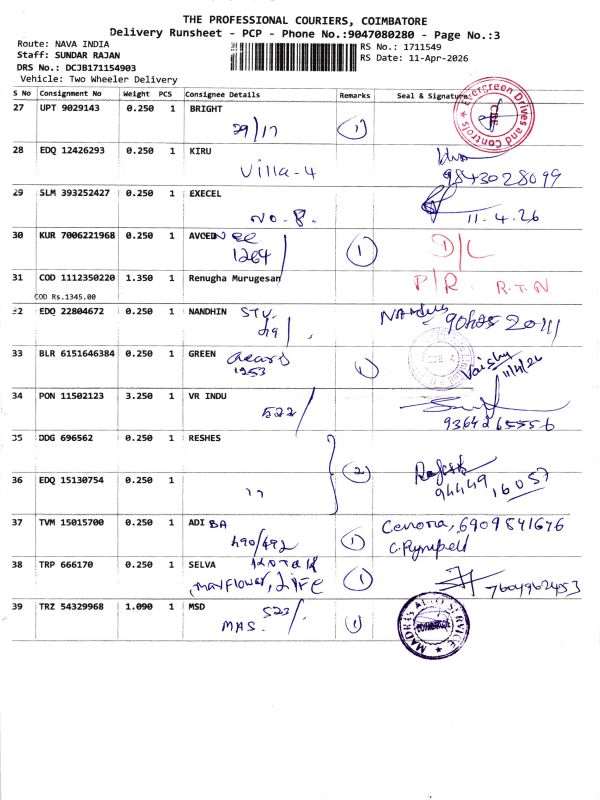 THE PROFESSIONAL COURIERS, COIMBATORE
Delivery Runsheet - PCP - Phone No.:9047080280 - Page No.:3
Route: NAVA INDIA
Staff: SUNDAR RAJAN
DRS No.: DCJB171154903
Vehicle: Two Wheeler Delivery
RS No.: 1711549
RS Date: 11-Apr-2026
S No Consignment No Weight PCS Consignee Details Remarks Seal & Signature
27 UPT 9029143 0.250 1 BRIGHT
29/17 1
Evergreen Drives and Controls
CBE
28 EDQ 12426293 0.250 1 KIRU
Villa-4 9843028099
29 SLM 393252427 0.250 1 EXECEL
NO-8. 11.4.26
30 KUR 7006221968 0.250 1
1264 1 D/L
31 COD 1112350220 1.350 1 Renugha Murugesan P/R. R.T.N
COD Rs.1345.00
EDQ 22804672 0.250 1 NANDHIN
33 BLR 6151646384 0.250 1 GREEN
1253 1 Vaishu
11/4/26
34 PON 11502123 3.250 1 VR INDU
522/
9364265556
35 DDG 696562 0.250 1 RESHES
2
36 EDQ 15130754 0.250 1
94449 16057
37 TVM 15015700 0.250 1 ADI BA
490/492 1 6909841676
38 TRP 666170 0.250 1 SELVA
mayflower, LIFE 1 7604962453
39 TRZ 54329968 1.090 1 MSD 523/
MAS. 1
MADRAS AUTO SERVICE